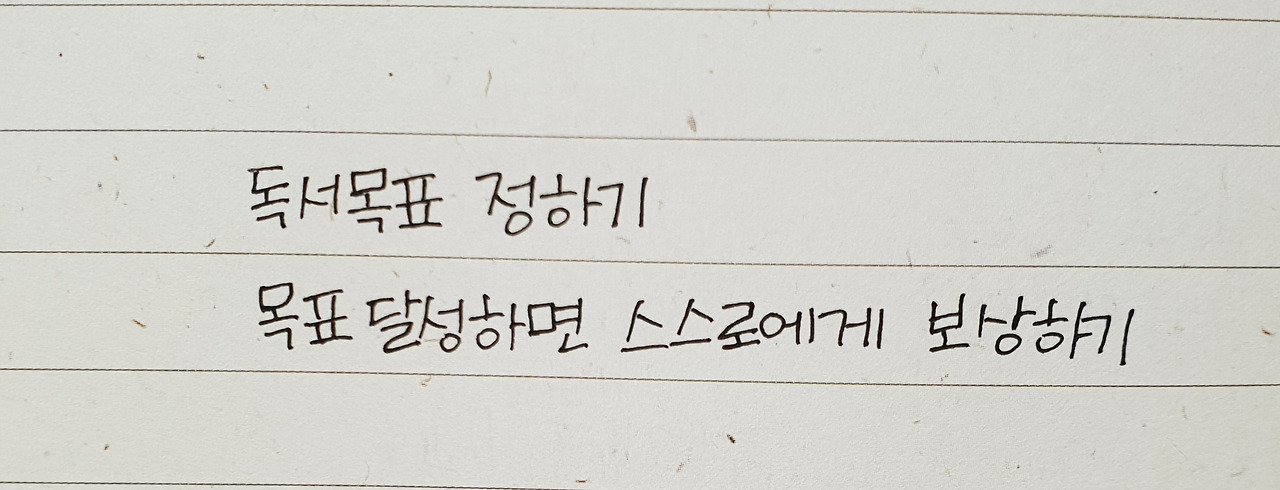 독서목표 정하기
목표 달성하면 스스로에게 보상하기